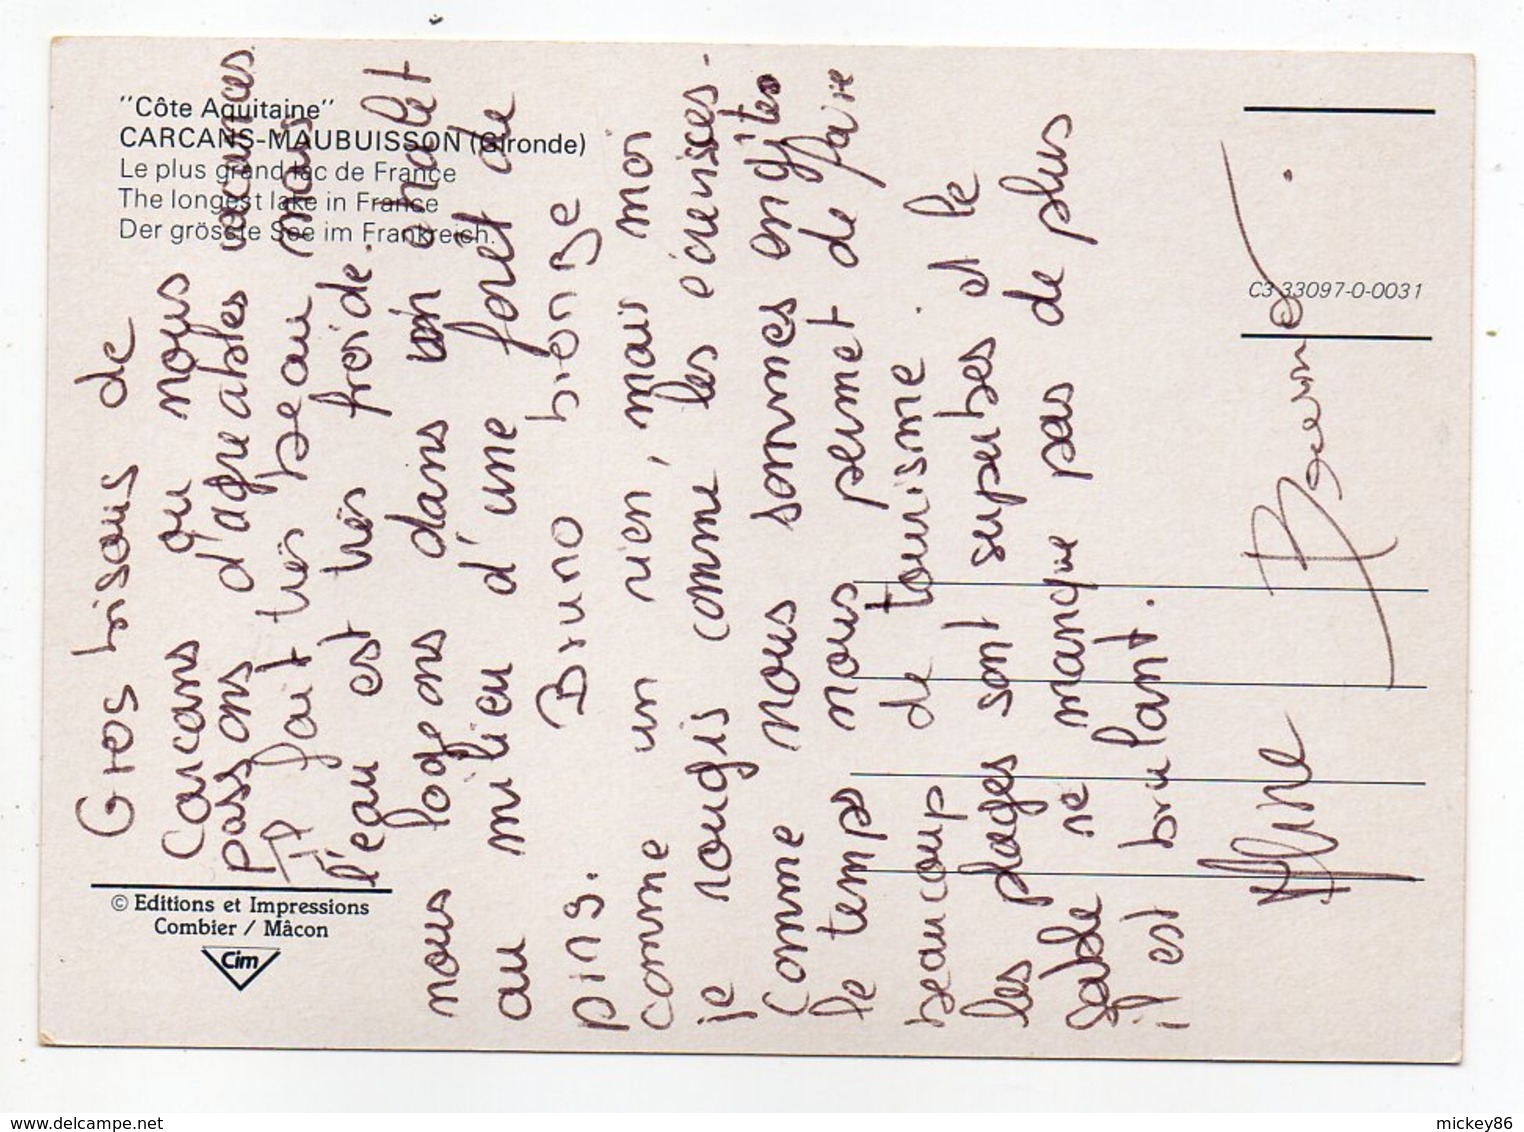 "Côte Aquitaine"
CARCANS-MAUBUISSON (Gironde)
Le plus grand lac de France
The longest lake in France
Der grösste See im Frankreich.
C3 33097-0-0031
© Editions et Impressions
Combier / Mâcon
Cim
Gros bisous de
Carcans ou nous
passons d'agreables vacances
Il fait très beau mais
l'eau est très froide.
nous logeons dans un chalet
au milieu d'une forêt de
pins. Bruno bronze
comme un rien, mais moi
je rougis comme les écrevisses.
Comme nous sommes en gites
le temps nous permet de faire
beaucoup de tourisme.
les plages sont superbes et le
sable ne manque pas de plus
il est brulant.
Aline
mickey86